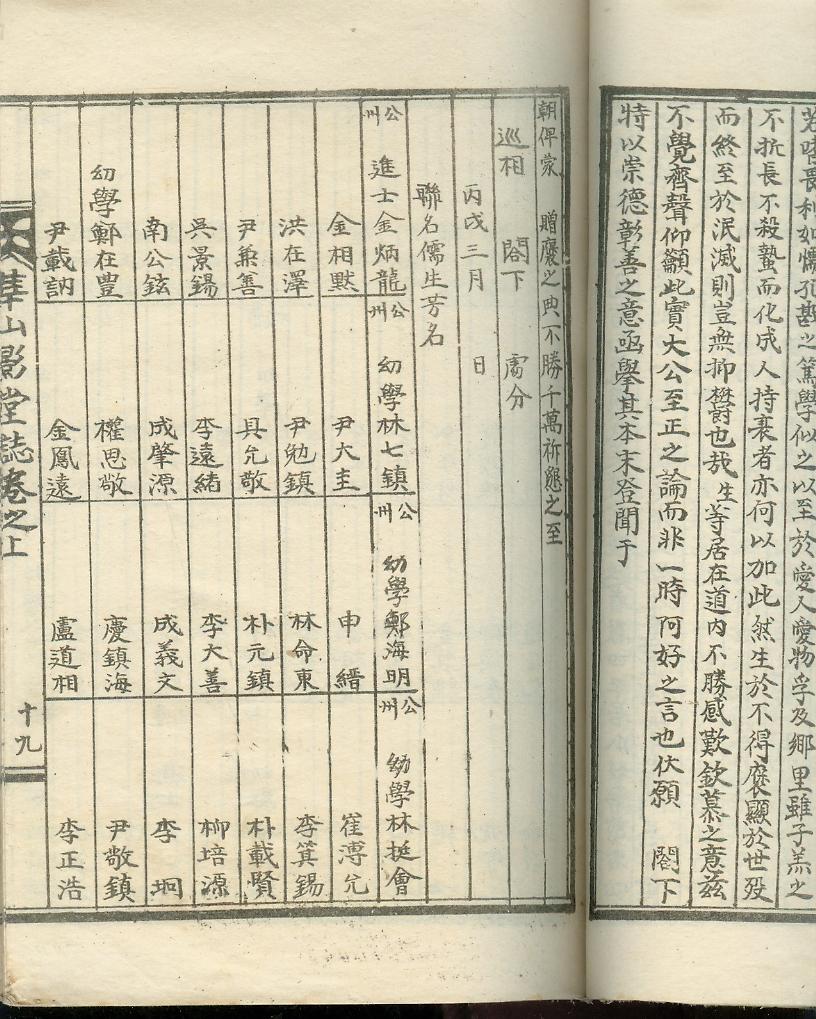 若嗜畏利如懦孔斟之篤學似之以至於愛人愛物孚及鄉里雖子羔之
不折長不殺蟄而化成人持衰者亦何以加此然生於不得褒顯於世歿
而終至於泯滅則豈無抑欝也哉生等居在道內不勝感歎欽慕之意玆
不覺齊聲仰籲此實大公至正之論而非一時阿好之言也伏願 閤下
特以崇德彰善之意函擧其本末登聞于
朝俾蒙 贈褒之典不勝千萬祈懇之至
巡相 閤下 處分
丙戌三月 日
聯名儒生芳名
公州 進士金炳龍 公州 幼學林七鎮 公州 幼學鄭海明 公州 幼學林挺會
金相默 尹大圭 申縉 崔漙允
洪在澤 尹勉鎮 林命東 李箕錫
尹兼善 具允敬 朴元鎮 朴載賢
吳景錫 李遠緖 李大善 柳培源
南公鉉 成肇源 成義文 李坰
幼學鄭在豊 權思敬 慶鎮海 尹敬鎮
尹載訥 金鳳遠 盧道相 李正浩
華山影堂誌卷之上 十九